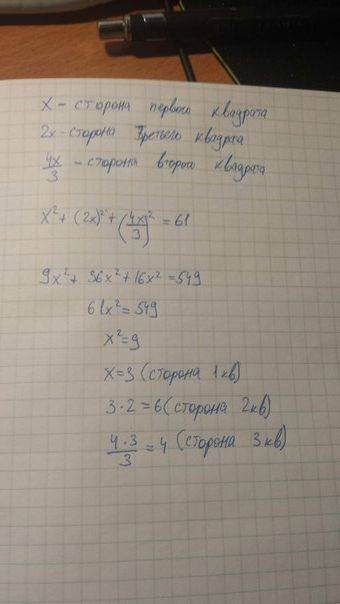 x - сторона первого квадрата
2x - сторона третьего квадрата
4x/3 - сторона второго квадрата
x² + (2x)² + (4x/3)² = 61
9x² + 36x² + 16x² = 549
61x² = 549
x² = 9
x = 3 (сторона 1 кв)
3 · 2 = 6 (сторона 2 кв)
4 · 3/3 = 4 (сторона 3 кв)